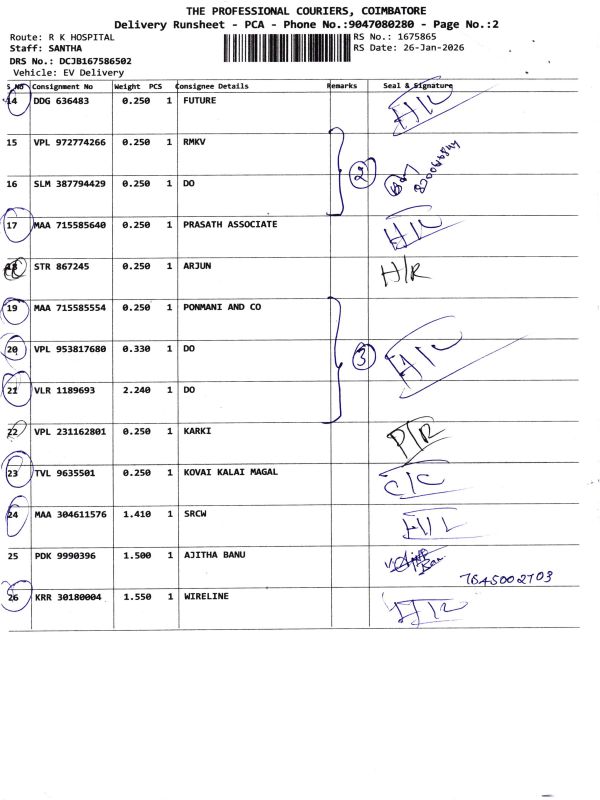 THE PROFESSIONAL COURIERS, COIMBATORE
Delivery Runsheet - PCA - Phone No.:9047080280 - Page No.:2
Route: R K HOSPITAL RS No.: 1675865
Staff: SANTHA RS Date: 26-Jan-2026
DRS No.: DCJB167586502
Vehicle: EV Delivery
S_No Consignment No Weight PCS Consignee Details Remarks Seal & Signature
14 DDG 636483 0.250 1 FUTURE
15 VPL 972774266 0.250 1 RMKV
2
16 SLM 387794429 0.250 1 DO
17 MAA 715585640 0.250 1 PRASATH ASSOCIATE
18 STR 867245 0.250 1 ARJUN H/R
19 MAA 715585554 0.250 1 PONMANI AND CO
20 VPL 953817680 0.330 1 DO 3
21 VLR 1189693 2.240 1 DO
22 VPL 231162801 0.250 1 KARKI P/R
23 TVL 9635501 0.250 1 KOVAI KALAI MAGAL C/C
24 MAA 304611576 1.410 1 SRCW
25 PDK 9990396 1.500 1 AJITHA BANU
7645002703
26 KRR 30180004 1.550 1 WIRELINE